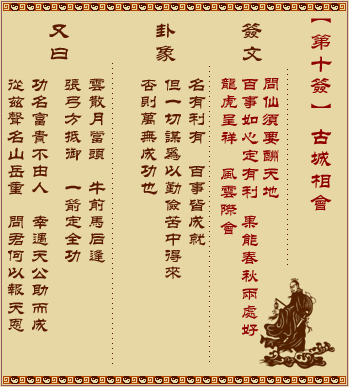 【第十簽】 古城相會
簽文
問仙須要酬天地
百事如心定有利 果能春秋兩處好
龍虎呈祥 風雲際會
卦象
名有利有 百事皆成就
但一切謀爲以勤儉苦中得來
否則萬無成功也
又曰
雲散月當頭 牛前馬后逢
張弓方抵御 一箭定全功
功名富貴不由人 幸遇天公助而成
從茲聲名山岳重 問君何以報天恩